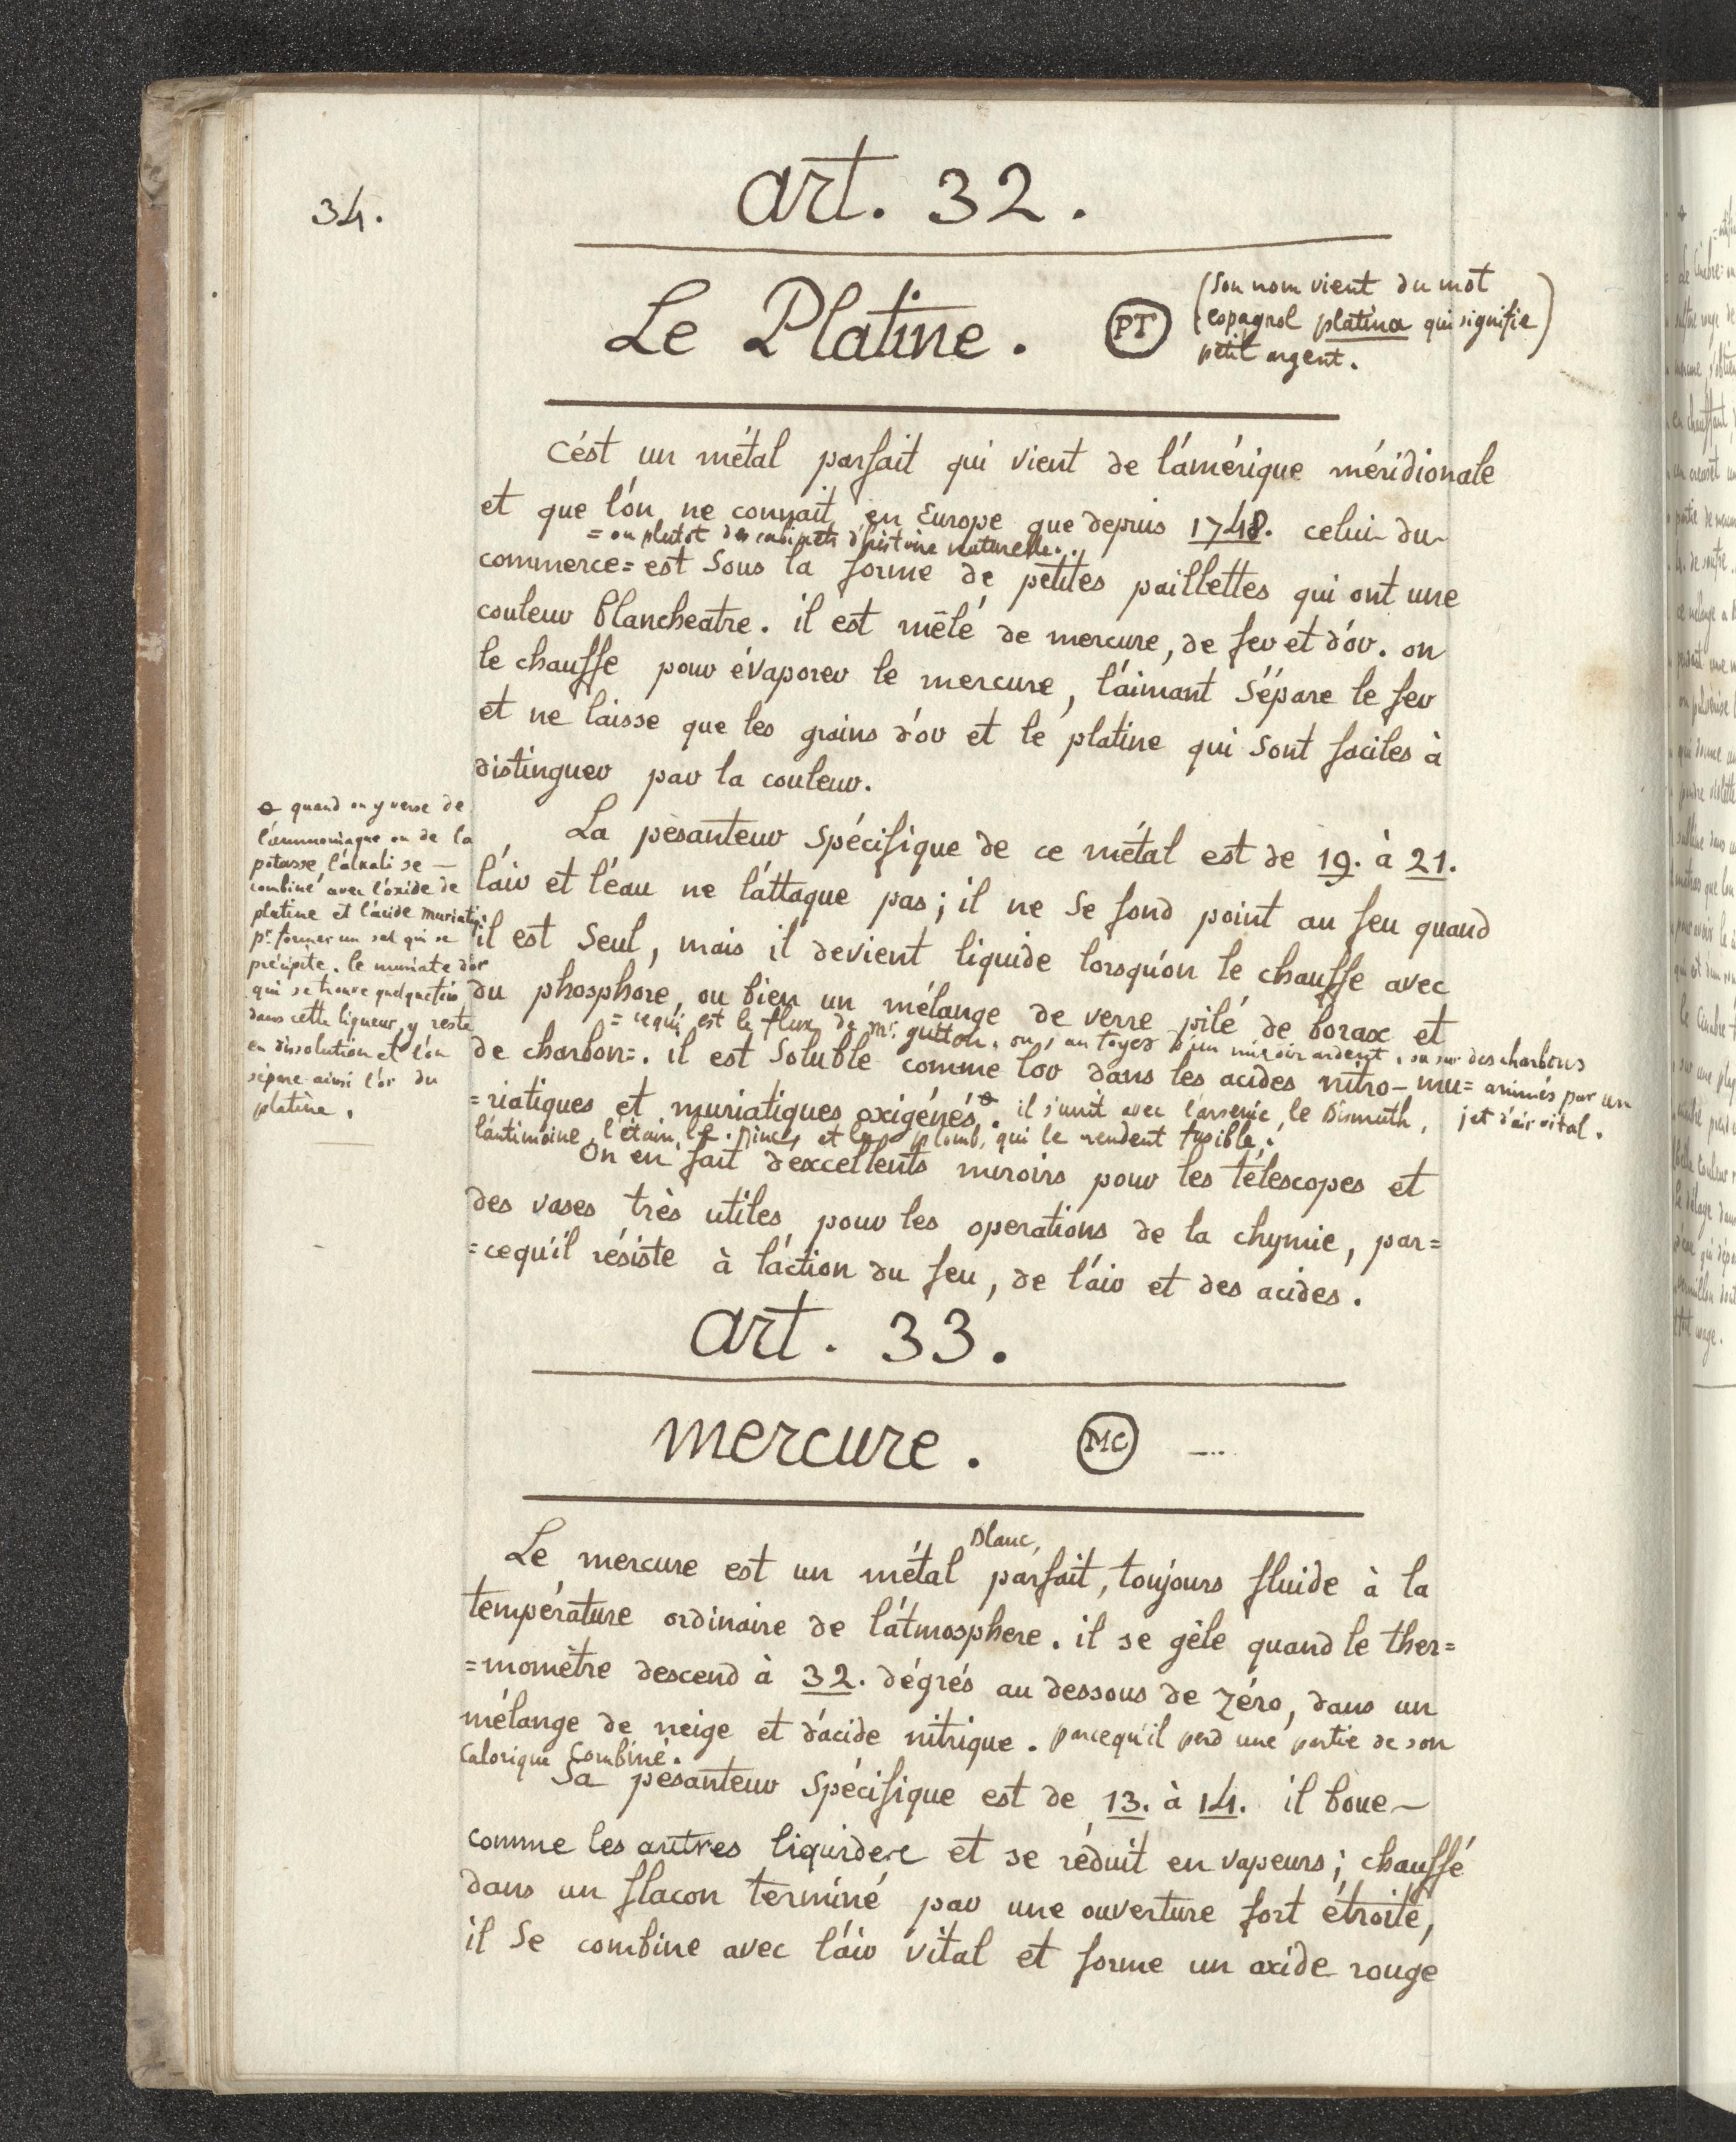 34.
art. 32.
Le Platine. PT
(Son nom vient du mot
espagnol platina qui signifie)
petit argent.
c'ést un métal parfait qui vient de l'ámérique méridionale
et que l'ón ne connait en Europe que depuis 1748. celui du
= ou plutot des cabinets d'histoire naturelle..
commerce= est Sous la forme de petites paillettes qui ont une
couleur blancheatre. il est mêlé de mercure, de fer et d'ór. on
le chauffe pour évaporer le mercure, l'áimant Sépare le fer
et ne laisse que les grains d'ór et le platine qui Sont faciles à
distinguer par la couleur.
La pesanteur Spécifique de ce métal est de 19. à 21.
l'áir et l'éau ne l'áttaque pas; il ne Se fond point au feu quand
il est Seul, mais il devient liquide lorsqu'ón le chauffe avec
du phosphore, ou bien un mélange de verre pilé de borax et
= cequi est le flux de mr. guiton. ou, au foyer d'un miroir ardent, ou sur des charbons
de charbon=. il est Soluble comme l'or dans les acides nitro-mu= animés par un
=riatiques et muriatiques oxigénés. il s'unit avec l'arsenic, le Bismuth, jet d'air vital.
l'ántimoine, l'étain, le zinc, et le plomb, qui le rendent fusible.
On en fait d'éxcellents miroirs pour les télescopes et
des vases très utiles pour les operations de la chymie, par=
=cequ'il résiste à l'áction du feu, de l'áir et des acides.
quand on y verse de
l'ammoniaque ou de la
potasse, l'álkali se —
combine avec l'oxide de
platine et l'acide muriatiq.
pr. former un sel qui se
précipite. le muriate d'or
qui se trouve quelquefois
dans cette liqueur, y reste
en dissolution et l'on
sépare ainsi l'or du
platine.
art. 33.
mercure. MC
Le mercure est un métal blanc, parfait, toujours fluide à la
température ordinaire de l'átmosphere. il se gèle quand le ther=
=momètre descend à 32. dégrés au dessous de zéro, dans un
mélange de neige et d'ácide nitrique. parcequ'il perd une partie de son
calorique combiné.
Sa pesanteur Spécifique est de 13. à 14. il boue
comme les autres liquides et se réduit en vapeurs; chauffé
dans un flacon terminé par une ouverture fort étroite,
il Se combine avec l'áir vital et forme un oxide rouge